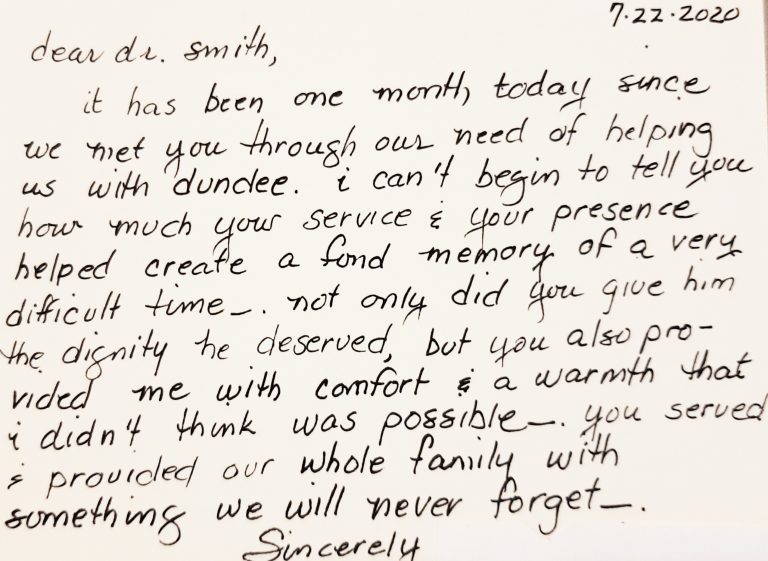 7.22.2020
dear dr. smith,
it has been one month, today since
we met you through our need of helping
us with dundee. i can't begin to tell you
how much your service & your presence
helped create a fond memory of a very
difficult time—. not only did you give him
the dignity he deserved, but you also pro-
vided me with comfort & a warmth that
i didn't think was possible—. you served
& provided our whole family with
something we will never forget—.
Sincerely